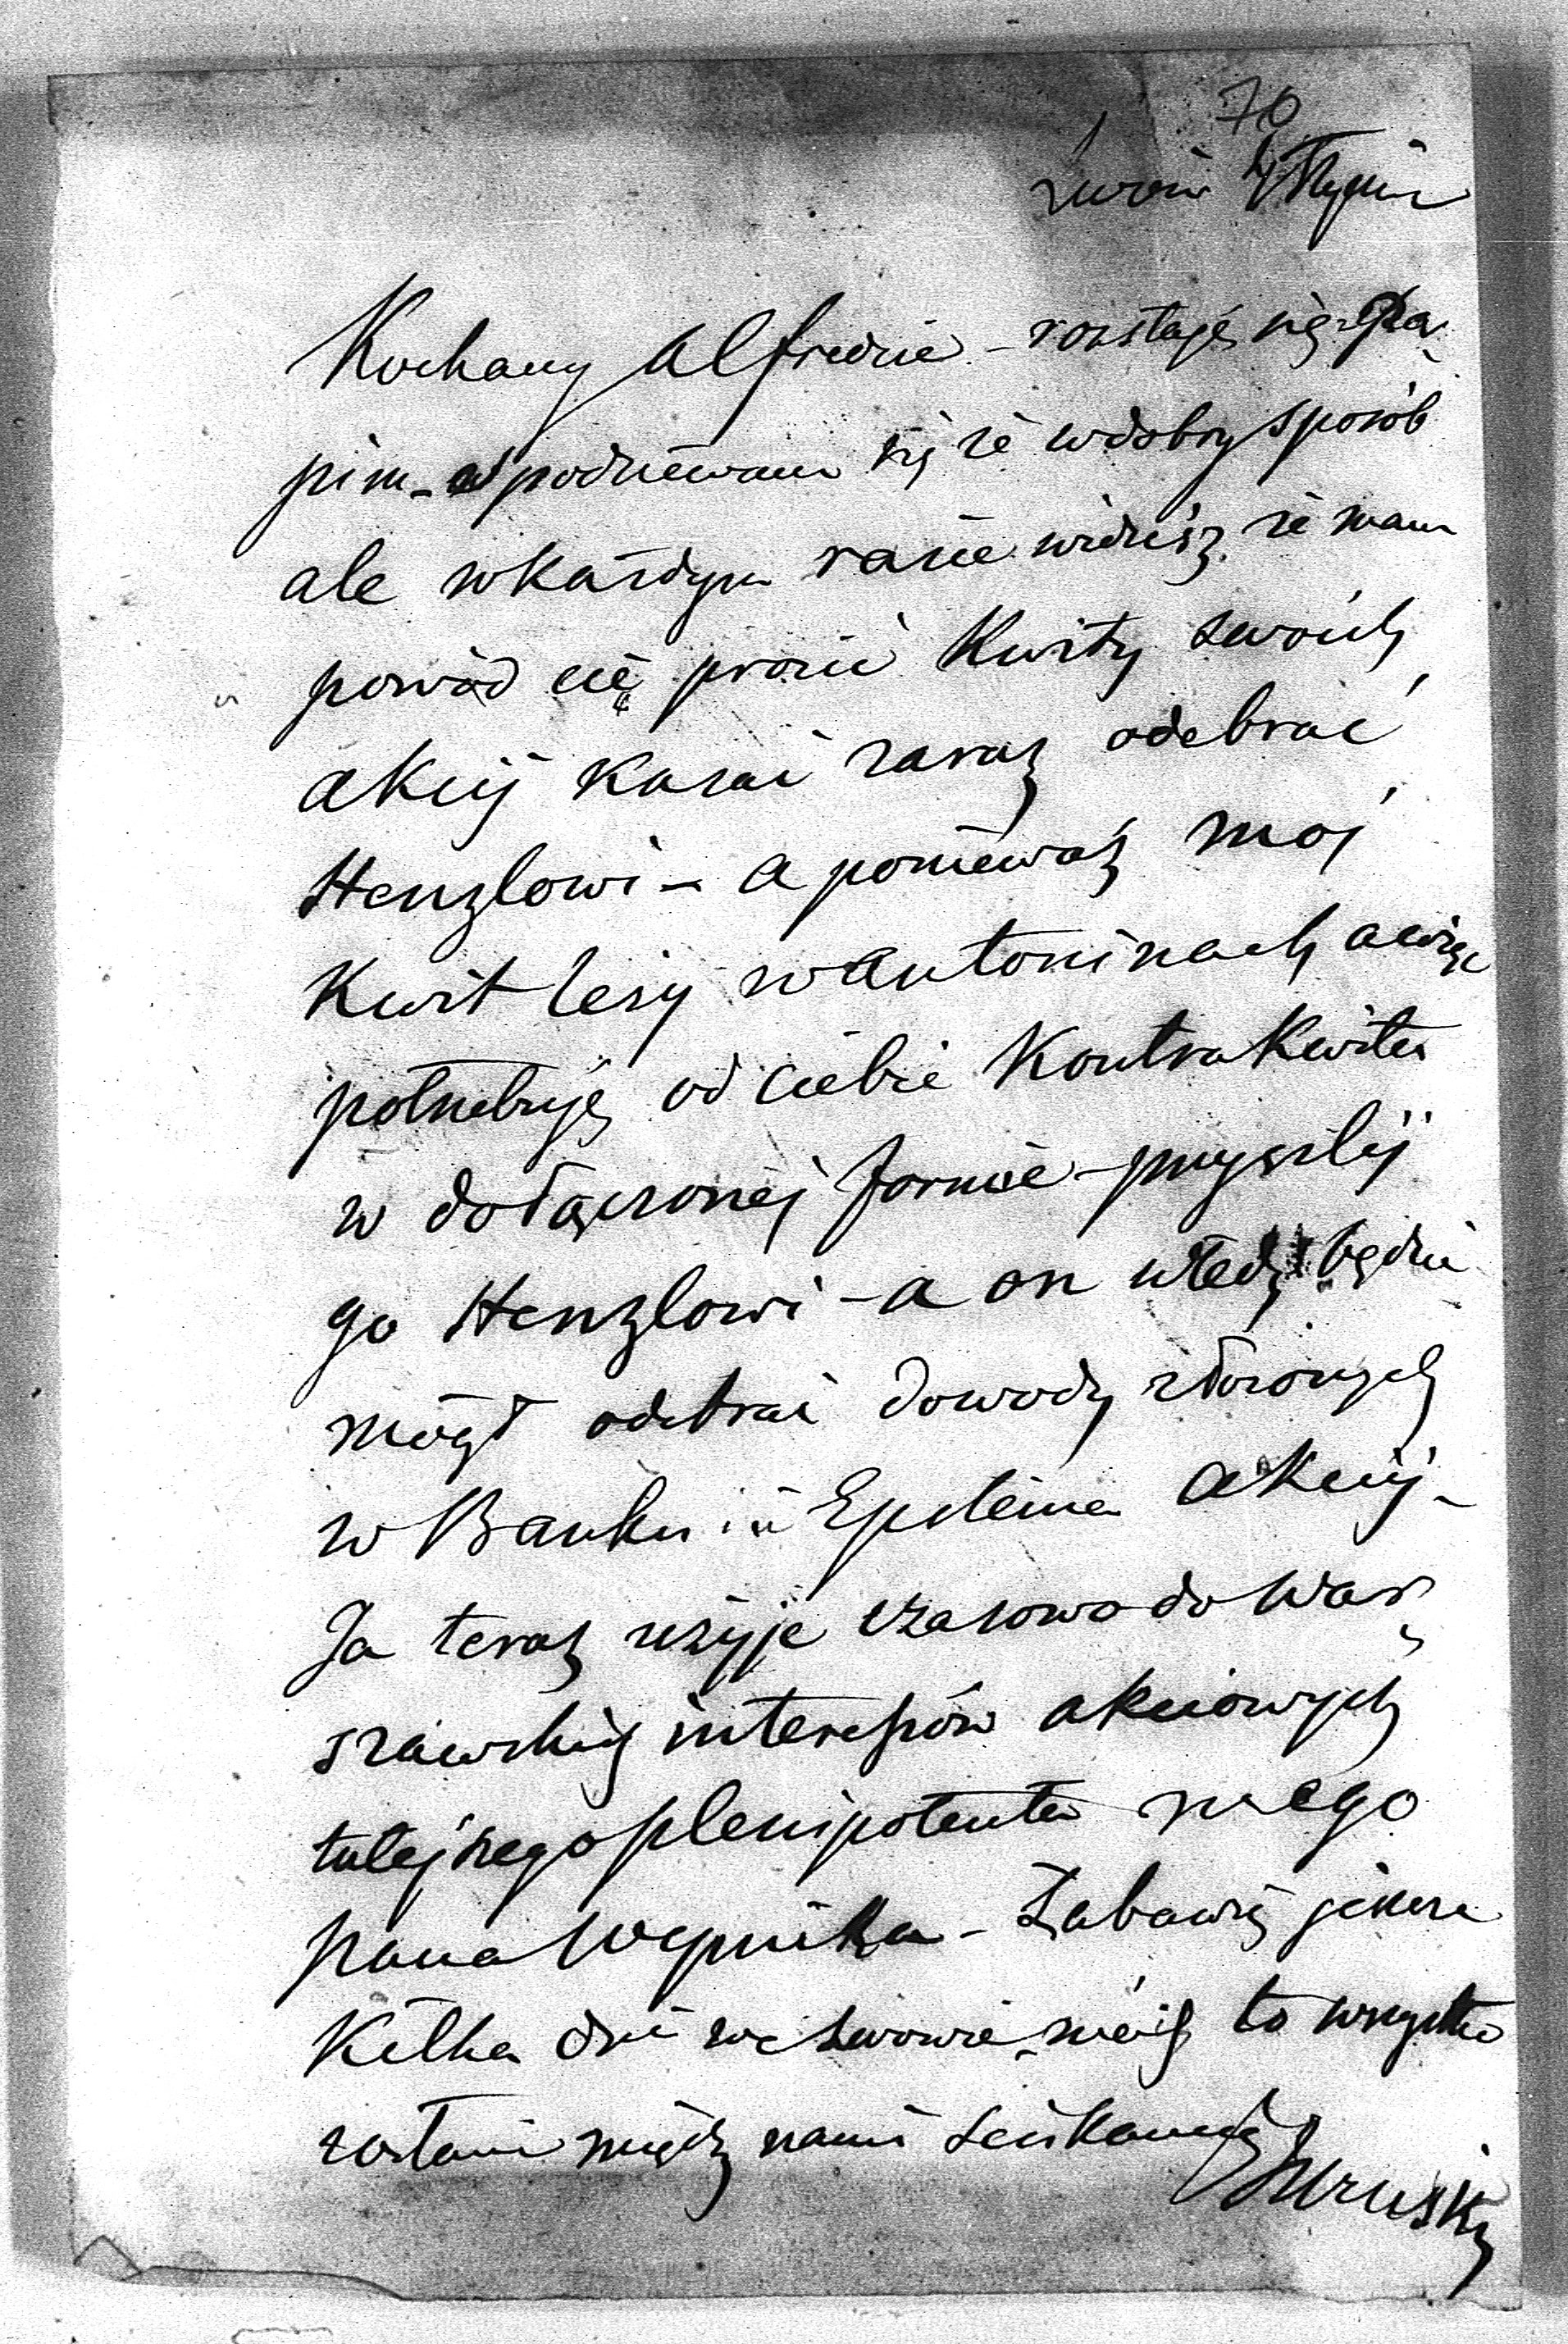 70
Lwów 4 Stycznia
Kochany Alfredzie – rozstaję się z Pa-
pim – spodziewam się że wdobry sposób
ale wkażdym razie widzisz że mam
powód cię prosić Kwity swoich
akcij kazać zaraz odebrać
Henzlowi – a ponieważ moj
Kwit leży w Antoninach a więc
potrzebuję od ciebie Kontrakwitu
w dołączonej formie – przyszlij
go Henzlowi – a on wtedy będzie
mógł odebrać dowody złożonych
w Banku i u Epsteina akcij –
Ja teraz użyje czasowo do War-
szawskich interessów akciowych
tutejszego plenipotenta mego
pana – Zabawię jeszcze
Kilka dni we Lwowie – niech to wszystko
zostanie między nami Ściskam cię